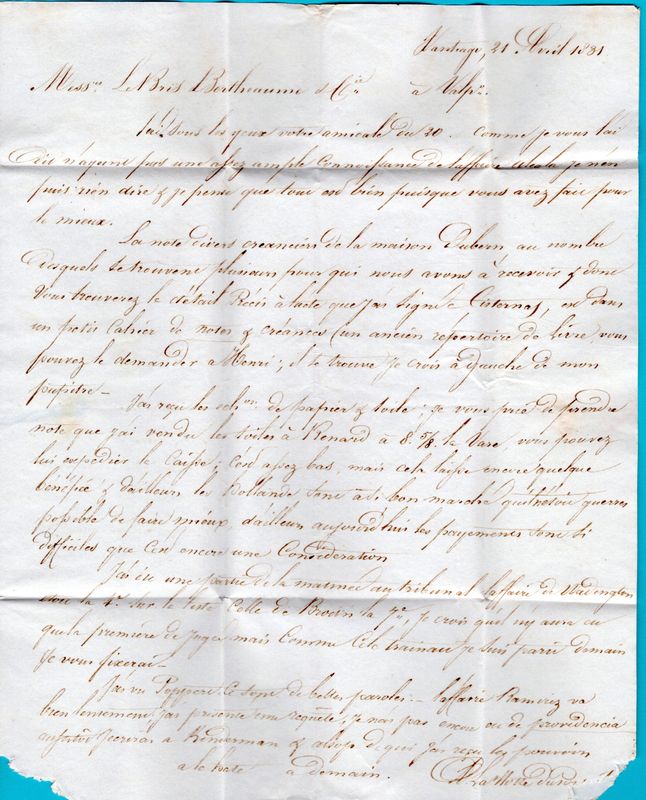 Santiago, 21 Avril 1831
Mess.rs Le Bris Bertheaume & C.ie à Valp.o
J'ai sous les yeux votre amicale du 20. Comme je vous l'ai
dit n'ayant pas une assez ample connaissance de l'affaire je n'en
puis rien dire & je pense que tout est bien puisque vous avez fait pour
le mieux.
La note divers creanciers de la maison Dubern au nombre
desquels se trouvent plusieurs pour qui nous avons à recevoir & dont
vous trouverez le détail à l'acte que j'ai signé Cisternas, est dans
un petit Cahier de notes & creances (un ancien repertoire de Livre, vous
pouvez le demander a Henri; il se trouve je crois à gauche de mon
pupitre —
J'ai reçu les ech.ons de papier & toile; je vous prie de prendre
note que j'ai vendu les toiles à Renard à 8 5/8 la Vare, vous pouvez
lui expedier la Caisse; c'est assez bas, mais cela laisse encore quelque
bénéfice & d'ailleurs les Hollandes sont a si bon marché qu'il n'étoit gueres
possible de faire mieux. d'ailleurs aujourd'hui les payements sont si
difficiles que c'en est encore une Considération
J'ai été une partie de la matinée au tribunal l'affaire de Wadington
étoit la 4.e sur la liste celle de Brown la 7.e, je crois qu'il n'y aura eu
que la première de jugée mais comme cela trainait je suis parti demain
je vous fixerai —
J'ai vu Peppere ce sont de belles paroles — l'affaire Ramirez va
bien lentement j'ai présenté une requête, je n'ai pas encore eu de providencia
aussitôt j'ecrirai a & alsop de qui j'ai reçu les pouvoirs
a la hate à demain.